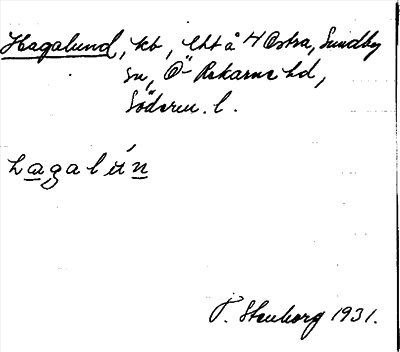 Hagalund, kb, lht å 4 Östra, Sundby
sn, Ö-Rekarne hd,
Söderm. l.
hagalún
F. Stenborg 1931.